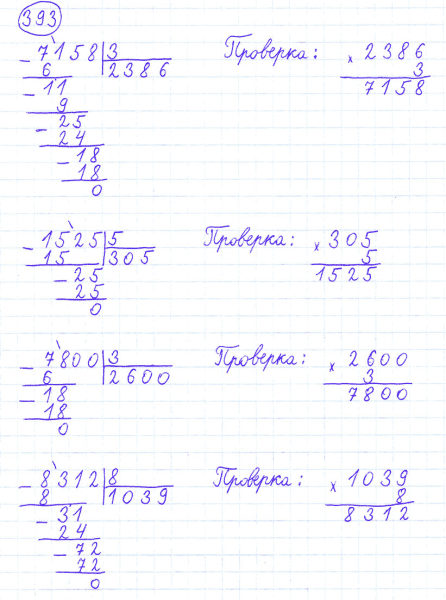 393
7158 3 Проверка: × 2386
- 6 2386 3
- 11 7158
9
- 25
24
- 18
18
0
- 1525 5 Проверка: × 305
15 305 5
- 25 1525
25
0
- 7800 3 Проверка: × 2600
6 2600 3
- 18 7800
18
0
- 8312 8 Проверка: × 1039
8 1039 8
- 31 8312
24
- 72
72
0